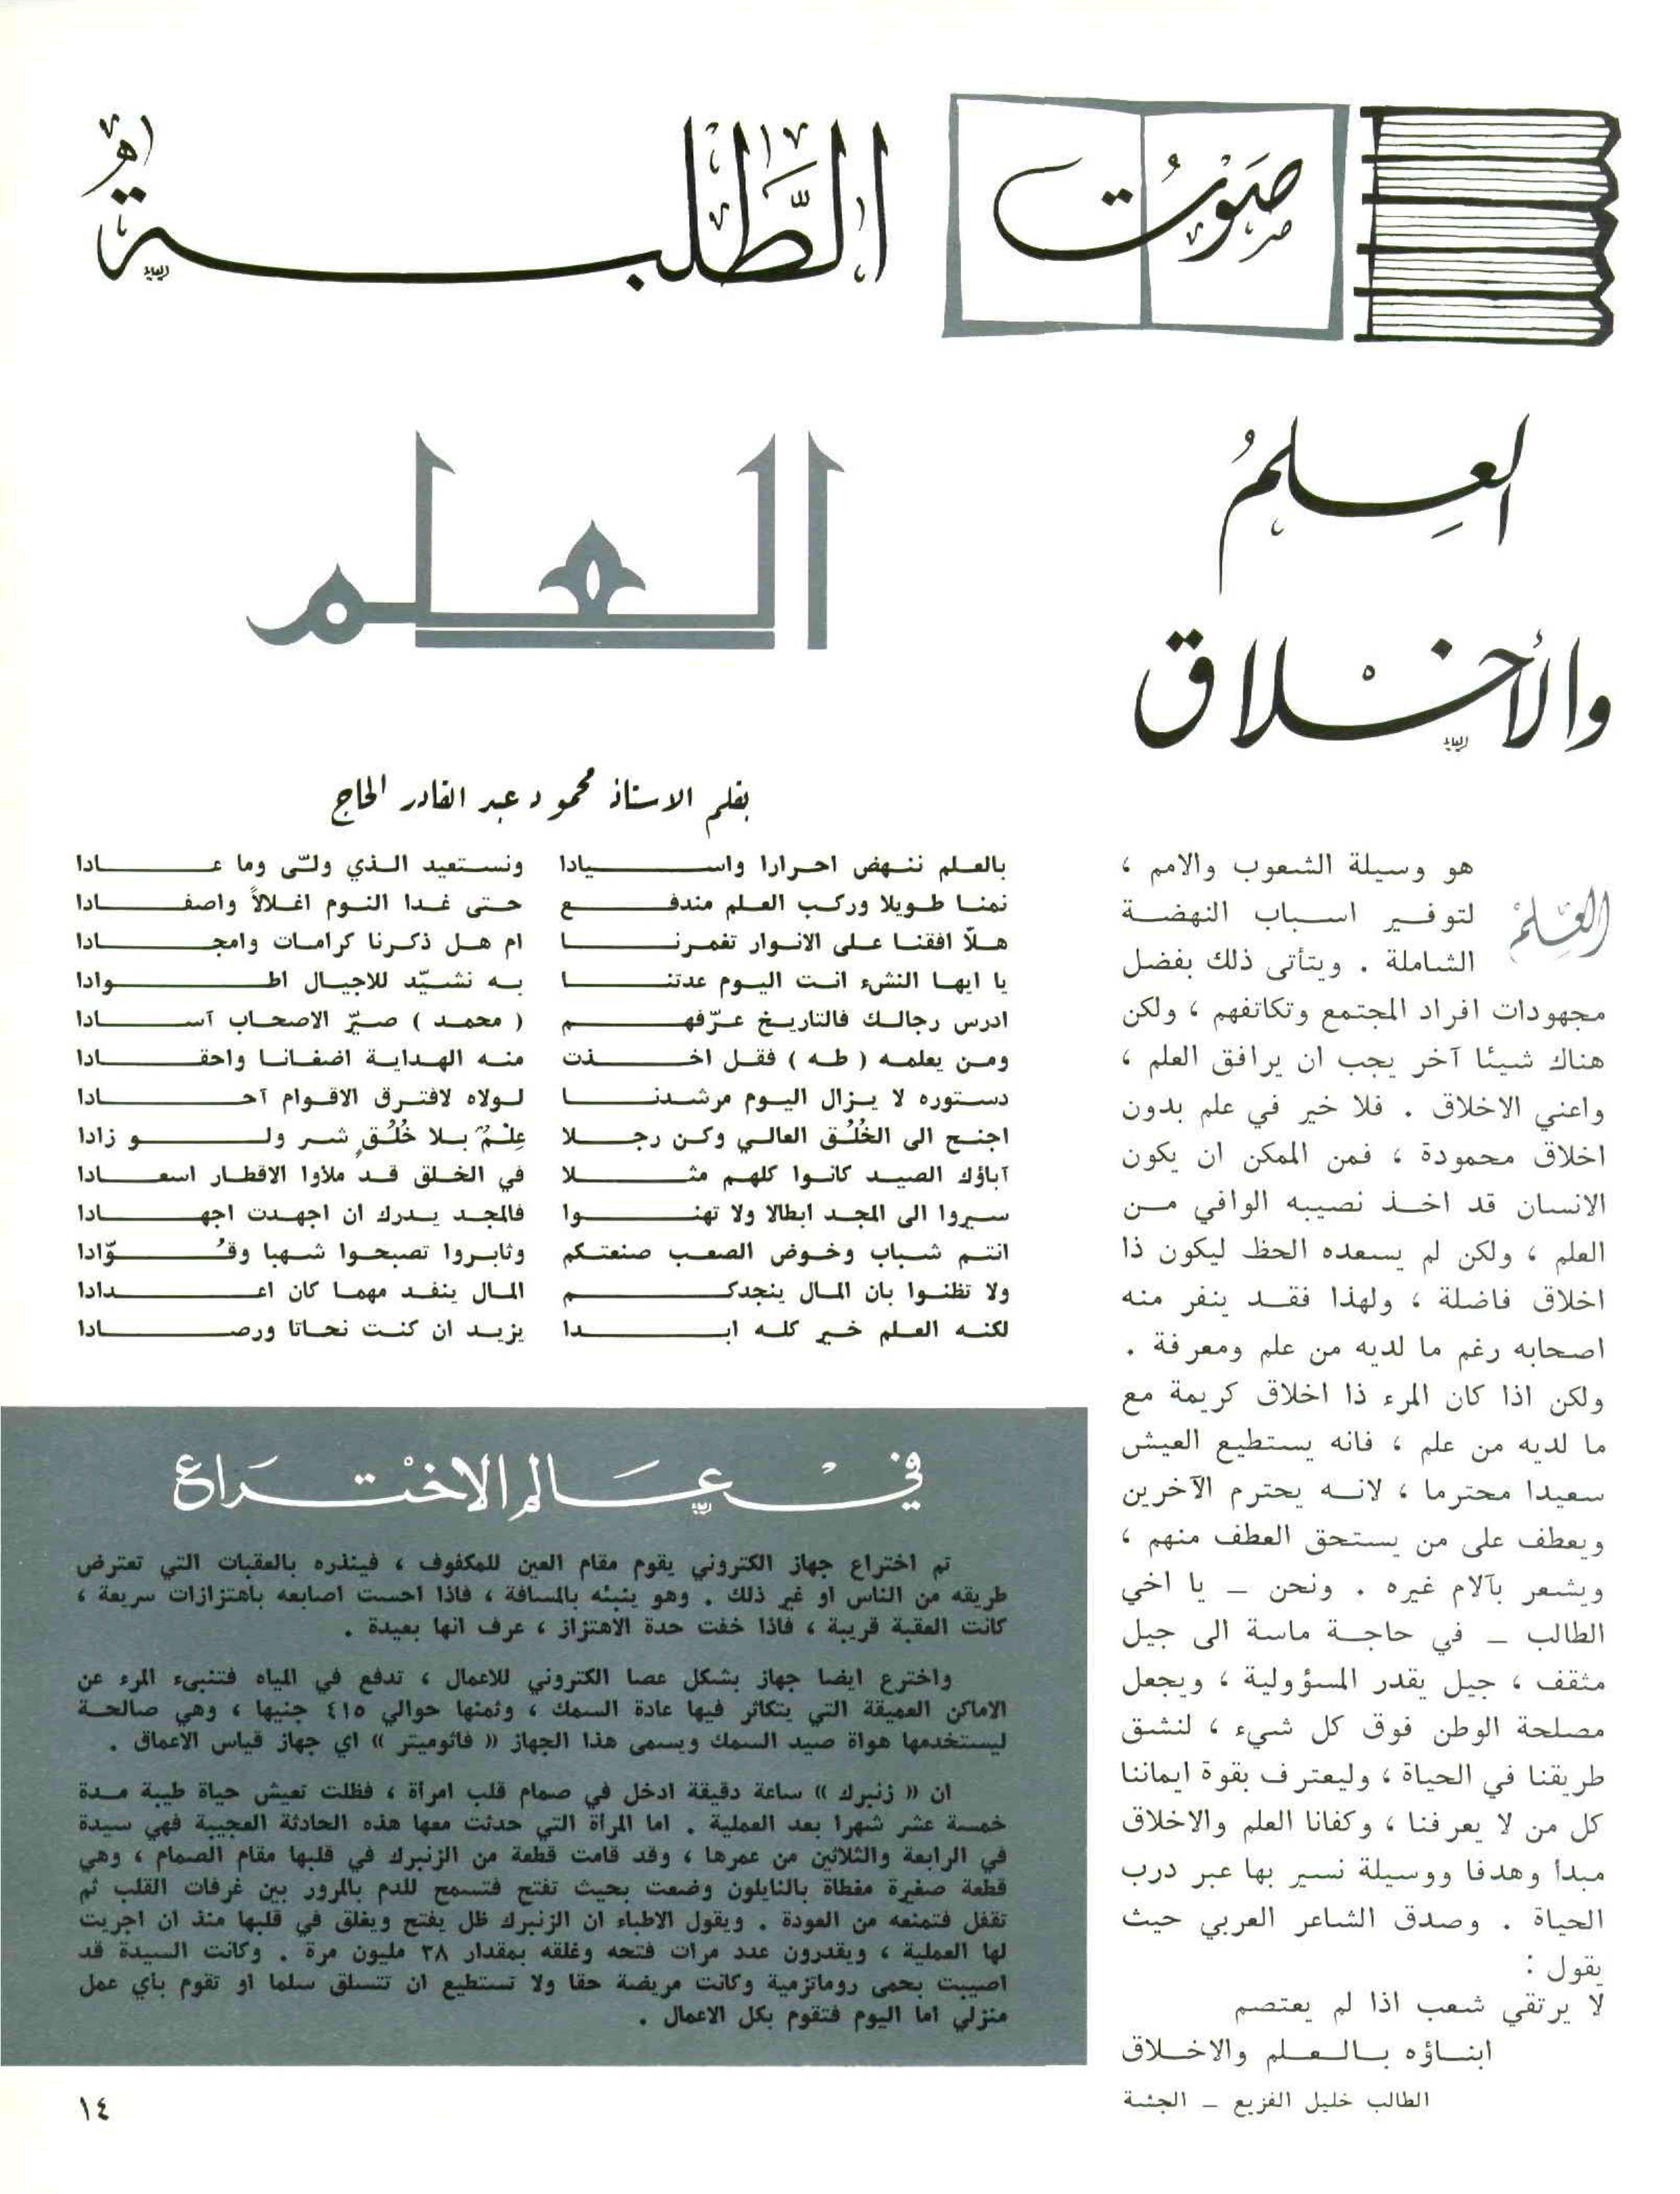 صَوْتُ الطَّلَبَةِ
العِلمُ
والأخْلاق
العِلمُ هو وسيلة الشعوب والامم ،
لتوفير اسباب النهضة
الشاملة . ويتأتى ذلك بفضل
مجهودات افراد المجتمع وتكاتفهم ، ولكن
هناك شيئا آخر يجب ان يرافق العلم ،
واعني الاخلاق . فلا خير في علم بدون
اخلاق محمودة ، فمن الممكن ان يكون
الانسان قد اخذ نصيبه الوافي من
العلم ، ولكن لم يسعده الحظ ليكون ذا
اخلاق فاضلة ، ولهذا فقد ينفر منه
اصحابه رغم ما لديه من علم ومعرفة .
ولكن اذا كان المرء ذا اخلاق كريمة مع
ما لديه من علم ، فانه يستطيع العيش
سعيدا محترما ، لانه يحترم الآخرين
ويعطف على من يستحق العطف منهم ،
ويشعر بآلام غيره . ونحن – يا اخي
الطالب – في حاجة ماسة الى جيل
مثقف ، جيل يقدر المسؤولية ، ويجعل
مصلحة الوطن فوق كل شيء ، لنشق
طريقنا في الحياة ، وليعترف بقوة ايماننا
كل من لا يعرفنا ، وكفانا العلم والاخلاق
مبدأ وهدفا ووسيلة نسير بها عبر درب
الحياة . وصدق الشاعر العربي حيث
يقول :
لا يرتقي شعب اذا لم يعتصم
ابناؤه بالعلم والاخلاق
الطالب خليل الفزيع – الجشة
العلم
بقلم الاستاذ محمود عبد القادر الحاج
بالعلم ننهض احرارا واسيادا ونستعيد الذي ولّى وما عادا
نمنا طويلا وركب العلم مندفع حتى غدا النوم اغلالاً واصفادا
هلاّ افقنا على الانوار تغمرنا ام هل ذكرنا كرامات وامجادا
يا ايها النشء انت اليوم عدتنا به نشيّد للاجيال اطوادا
ادرس رجالك فالتاريخ عرّفهم ( محمد ) صيّر الاصحاب آسادا
ومن يعلمه ( طه ) فقل اخذت منه الهداية اضغانا واحقادا
دستوره لا يزال اليوم مرشدنا لولاه لافترق الاقوام آحادا
اجنح الى الخُلُق العالي وكن رجلا عِلْمٌ بلا خُلُقٍ شر ولو زادا
آباؤك الصيد كانوا كلهم مثلا في الخلق قد ملأوا الاقطار اسعادا
سيروا الى المجد ابطالا ولا تهنوا فالمجد يدرك ان اجهدت اجهادا
انتم شباب وخوض الصعب صنعتكم وثابروا تصبحوا شهبا وقُوّادا
ولا تظنوا بان المال ينجدكم المال ينفد مهما كان اعدادا
لكنه العلم خير كله ابدا يزيد ان كنت نحاتا ورصادا
في عَالم الاخْتراع
تم اختراع جهاز الكتروني يقوم مقام العين للمكفوف ، فينذره بالعقبات التي تعترض
طريقه من الناس او غير ذلك . وهو ينبئه بالمسافة ، فاذا احست اصابعه باهتزازات سريعة ،
كانت العقبة قريبة ، فاذا خفت حدة الاهتزاز ، عرف انها بعيدة .
واخترع ايضا جهاز بشكل عصا الكتروني للاعمال ، تدفع في المياه فتنبىء المرء عن
الاماكن العميقة التي يتكاثر فيها عادة السمك ، وثمنها حوالي ٤١٥ جنيها ، وهي صالحة
ليستخدمها هواة صيد السمك ويسمى هذا الجهاز « فاثوميتر » اي جهاز قياس الاعماق .
ان « زنبرك » ساعة دقيقة ادخل في صمام قلب امرأة ، فظلت تعيش حياة طيبة مدة
خمسة عشر شهرا بعد العملية . اما المرأة التي حدثت معها هذه الحادثة العجيبة فهي سيدة
في الرابعة والثلاثين من عمرها ، وقد قامت قطعة من الزنبرك في قلبها مقام الصمام ، وهي
قطعة صغيرة مغطاة بالنايلون وضعت بحيث تفتح فتسمح للدم بالمرور بين غرفات القلب ثم
تقفل فتمنعه من العودة . ويقول الاطباء ان الزنبرك ظل يفتح ويغلق في قلبها منذ ان اجريت
لها العملية ، ويقدرون عدد مرات فتحه وغلقه بمقدار ٣٨ مليون مرة . وكانت السيدة قد
اصيبت بحمى روماتزمية وكانت مريضة حقا ولا تستطيع ان تتسلق سلما او تقوم بأي عمل
منزلي اما اليوم فتقوم بكل الاعمال .
١٤